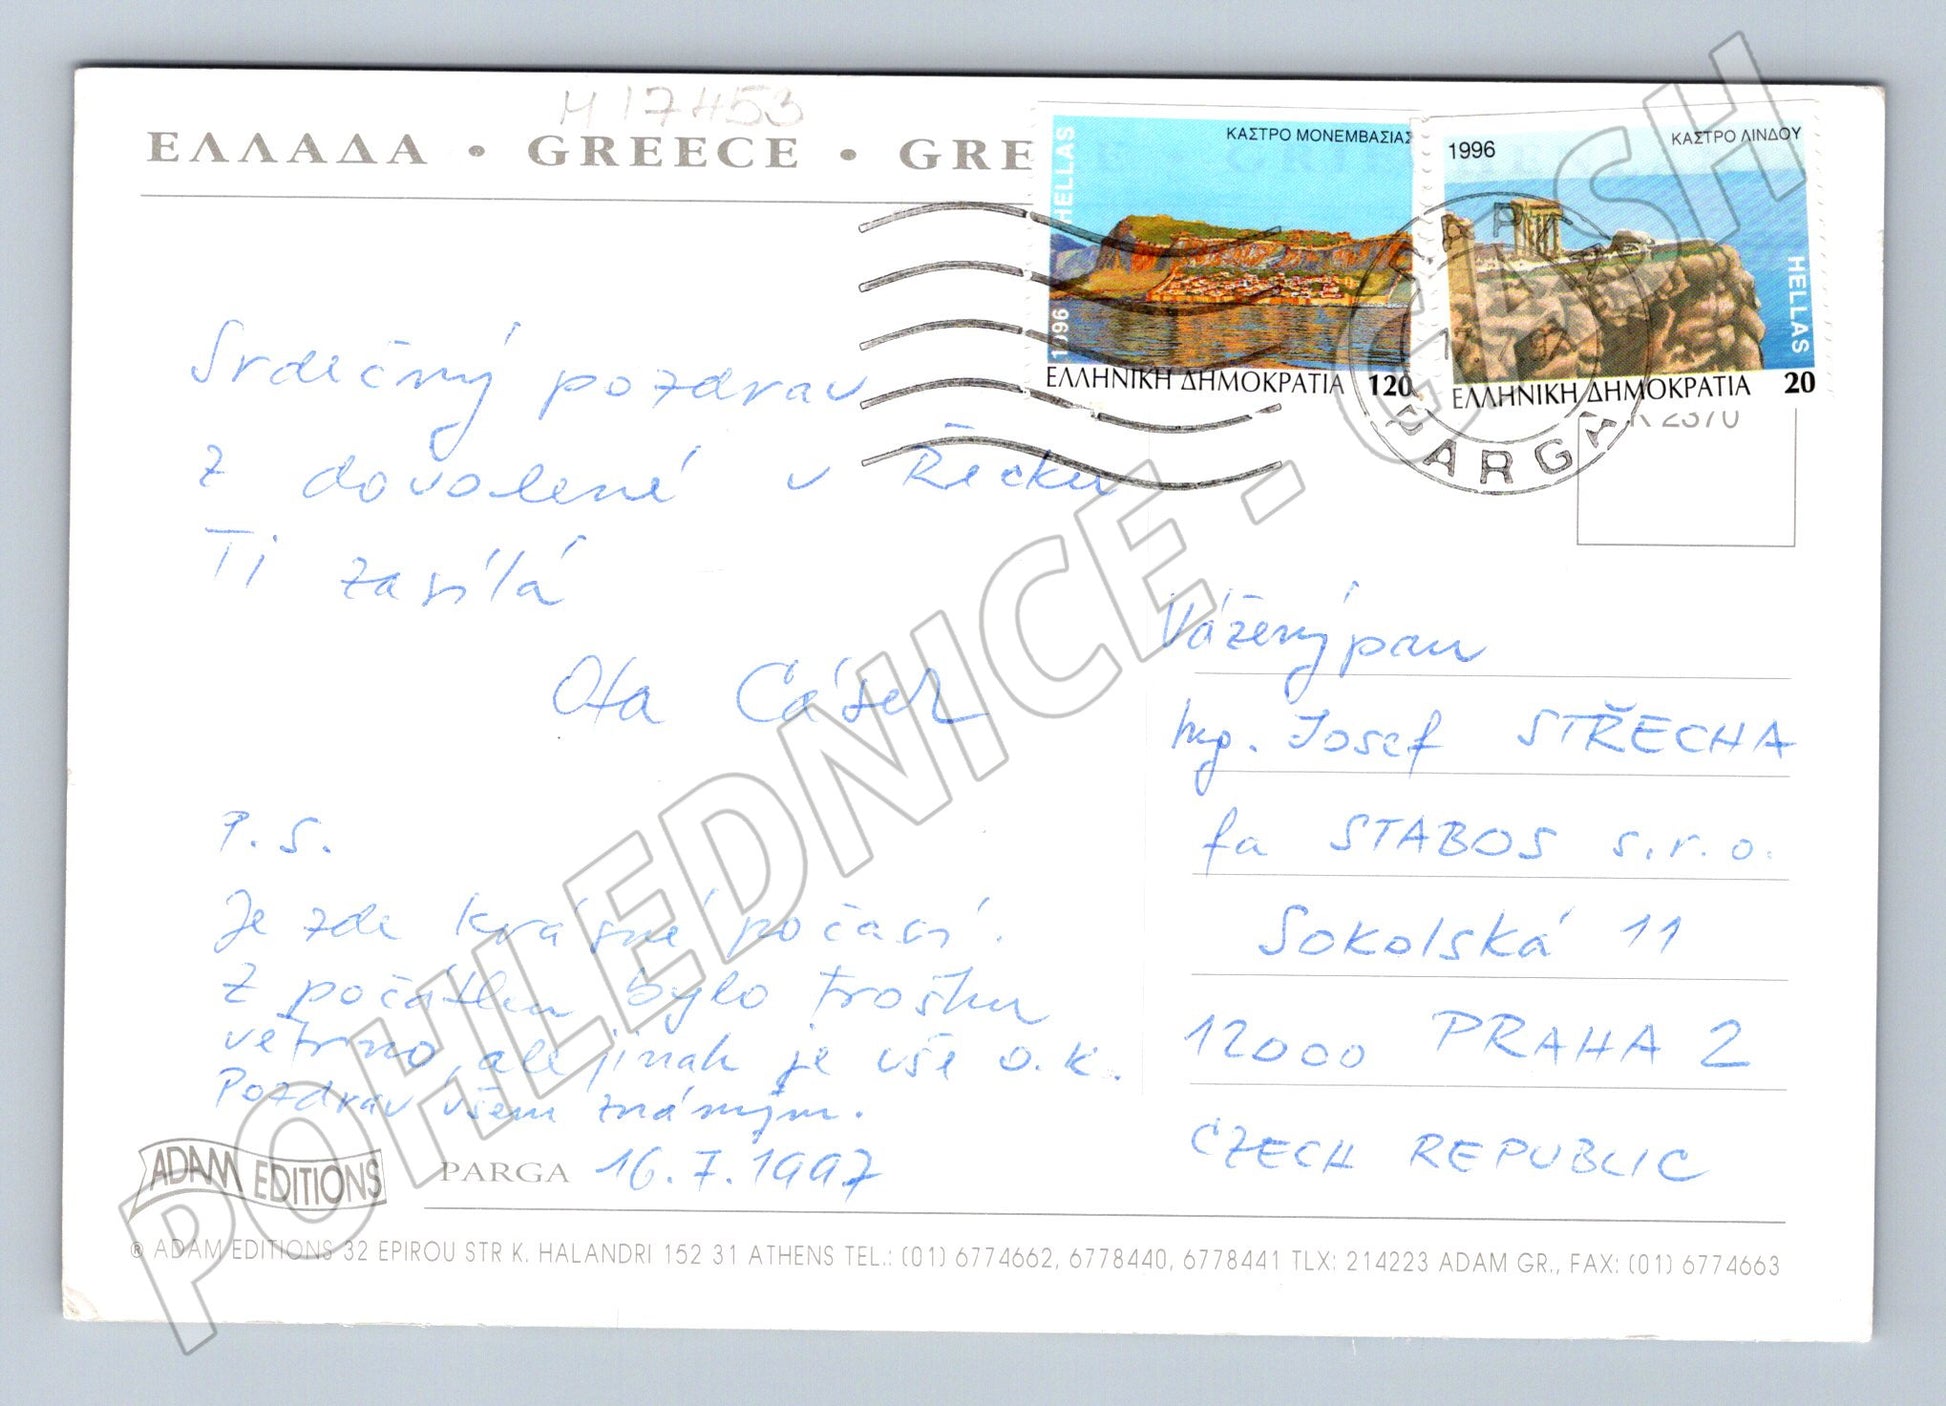 M 17453
ΕΛΛΑΔΑ • GREECE • GRE
HELLAS
ΚΑΣΤΡΟ ΜΟΝΕΜΒΑΣΙΑΣ
1996
ΕΛΛΗΝΙΚΗ ΔΗΜΟΚΡΑΤΙΑ 120
1996
ΚΑΣΤΡΟ ΛΙΝΔΟΥ
HELLAS
ΕΛΛΗΝΙΚΗ ΔΗΜΟΚΡΑΤΙΑ 20
PARGA
K 2370
Srdečný pozdrav
z dovolené v Řecku
Ti zasílá
Ota
P.S.
Je zde krásné počasí.
Z počátku bylo trošku
větrno, ale jinak je vše o.k.
Pozdrav všem známým.
PARGA 16.7.1997
Vážený pan
Ing. Josef STŘECHA
fa STABOS s.r.o.
Sokolská 11
12000 PRAHA 2
CZECH REPUBLIC
ADAM EDITIONS
® ADAM EDITIONS 32 EPIROU STR K. HALANDRI 152 31 ATHENS TEL.: (01) 6774662, 6778440, 6778441 TLX: 214223 ADAM GR., FAX: (01) 6774663
POHLEDNICE - CASH